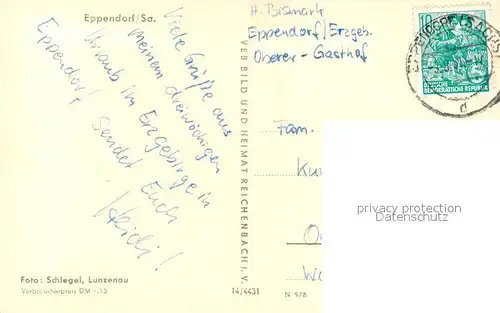 Eppendorf/Sa.
Viele Grüße aus
meinem dreiwöchigen
Urlaub im Erzgebirge in
Eppendorf sendet Euch
Heidi!
Foto: Schlegel, Lunzenau
Verbraucherpreis DM -,15
VEB BILD UND HEIMAT REICHENBACH I. V.
14/4431
N 9/8
H. Bismark
Eppendorf/Erzgeb.
Oberer-Gasthof
10
DEUTSCHE
DEMOKRATISCHE REPUBLIK
EPPENDORF (SACHS)
d
Fam.
Ku
O
W
privacy protection
Datenschutz